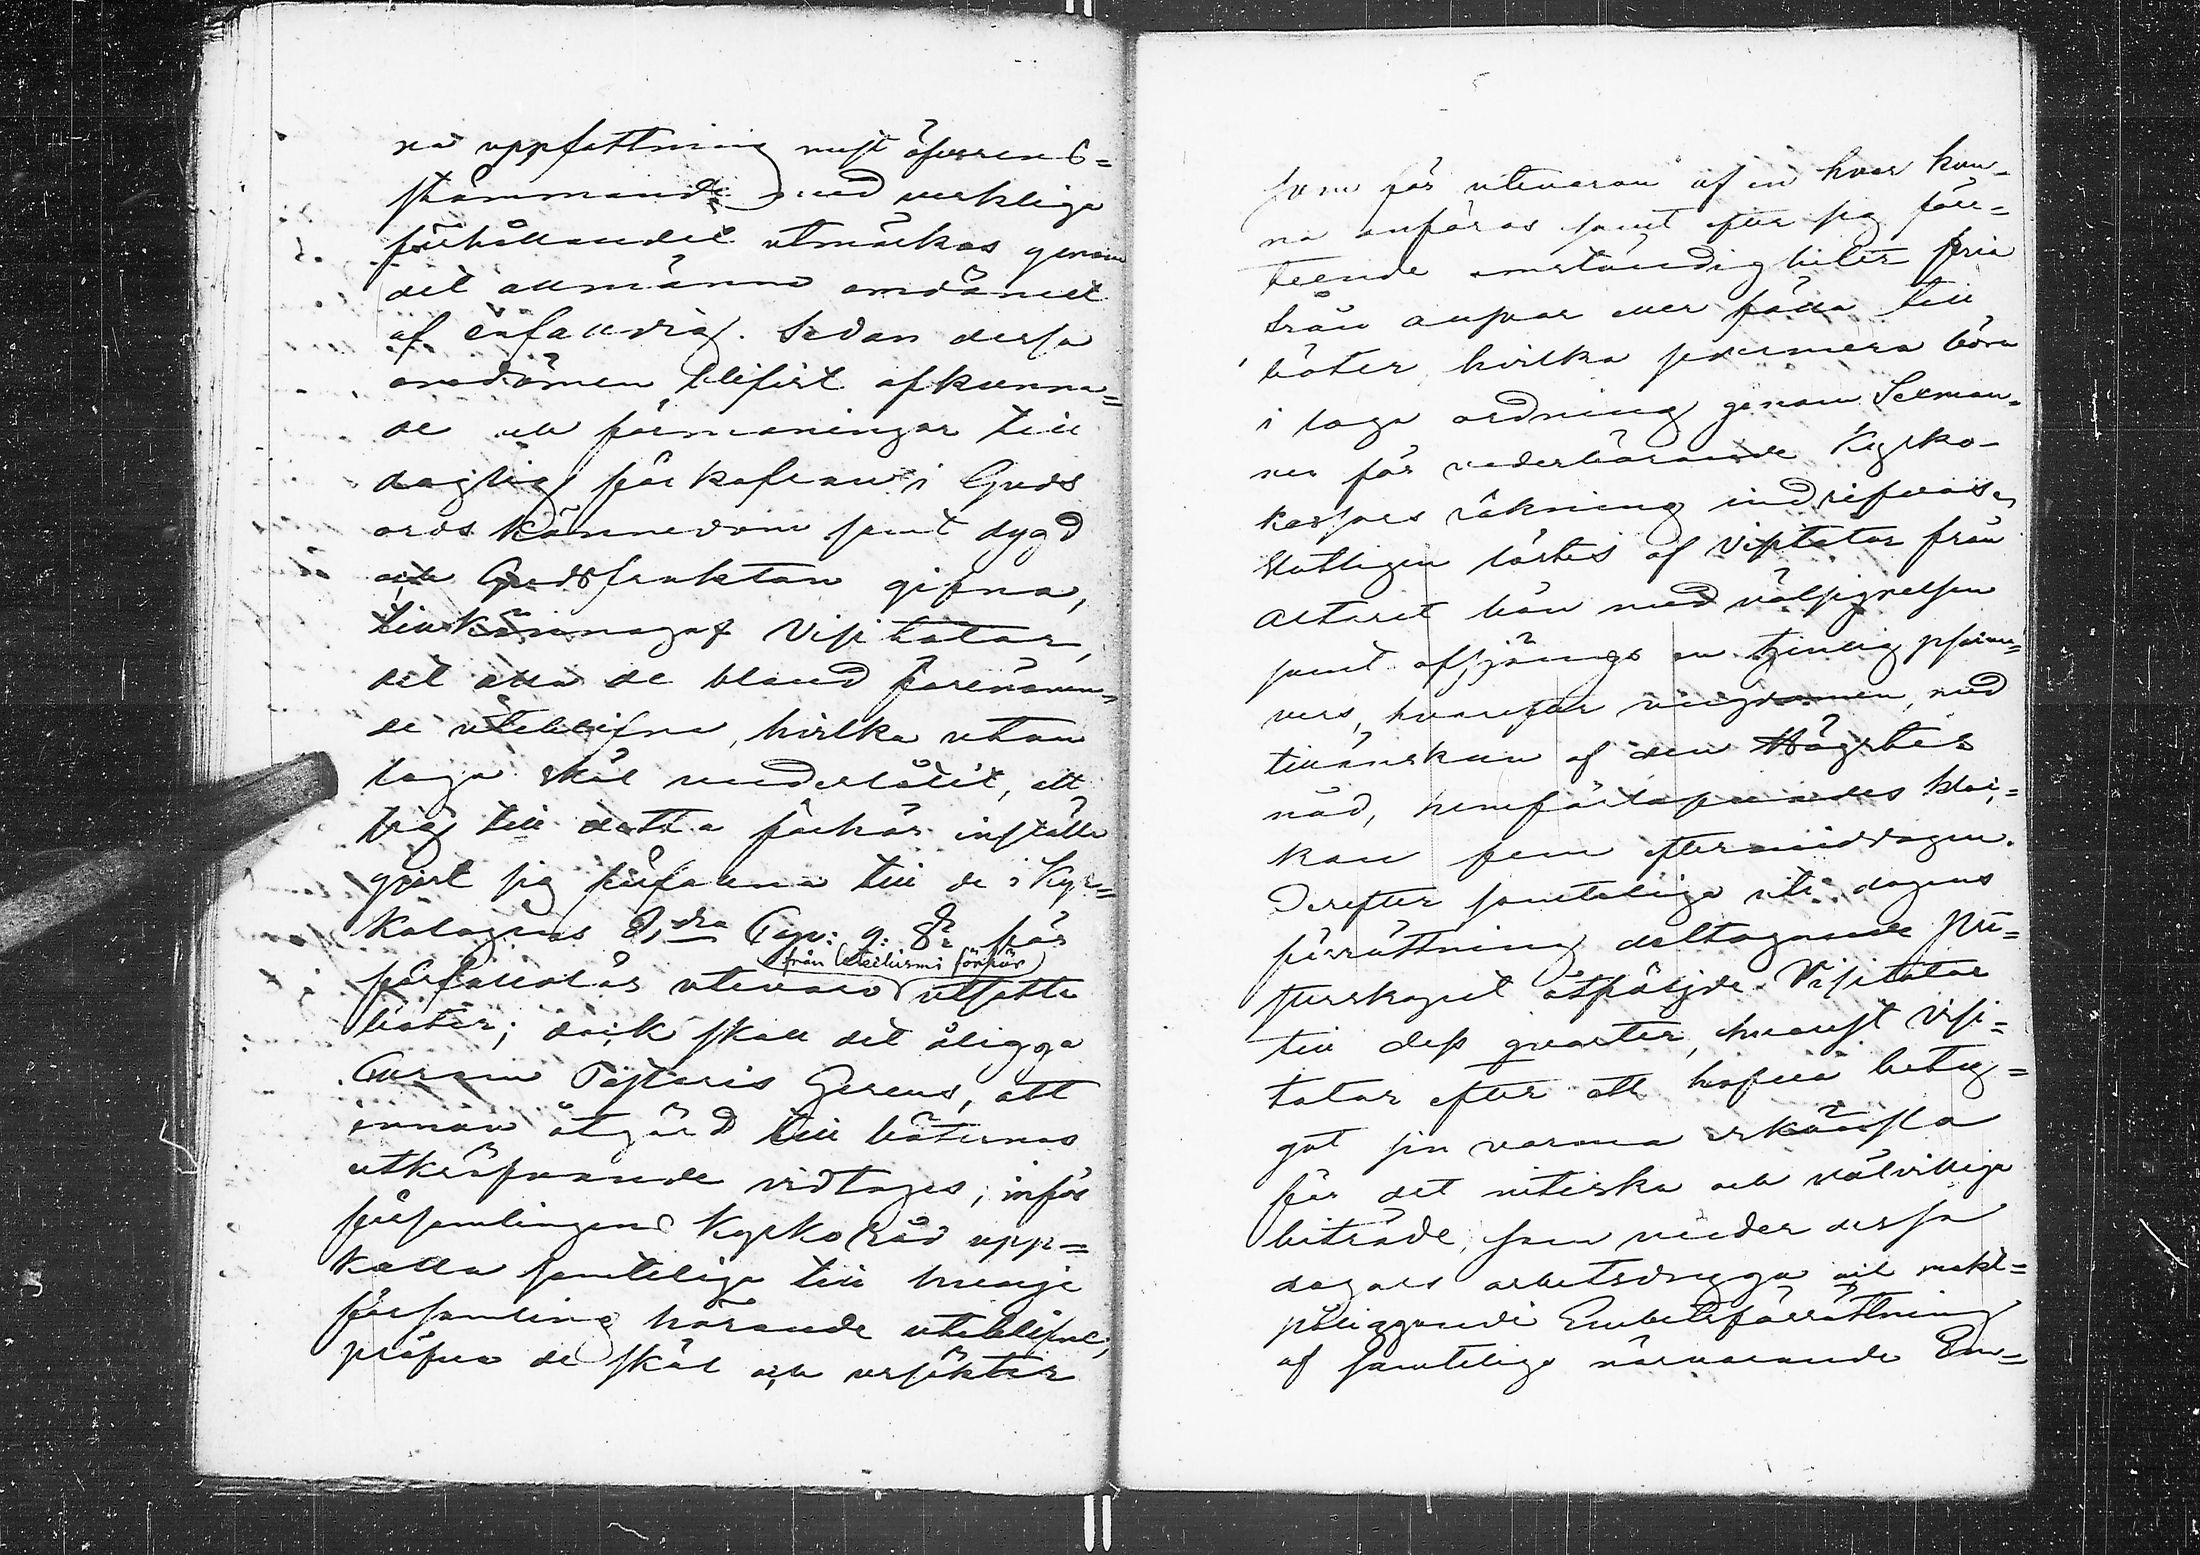 na uppfattning mest öfverens=
stämmande med verkliga
förhållandet utmärkas genom
det allmänna omdömet
af enfaldig. Sedan dessa
omdömen blifvit afkunna=
de och förmaningar till
daglig förkofran i Guds
ords kännedom samt dygd
och Gudsfruktan gifna,
tillkännagaf Visitator,
det alla de bland förenämn=
de uteblifna, hvilka utan
laga skäl underlåtit, att
sig till detta förhör inställa
gjort sig förfallna till de i Kyr=
kolagens 2,dra Cap: 9: § för
från Cathekismi förhör
förfallolös utevaro utsatte
böter; dock skall det åligga
Curam Pastoris Gerens, att
innan åtgärd till böternas
utkräfvande vidtages, inför
församlingens Kyrkoråd upp=
kalla samtelige till hvarje
församling hörande uteblifne,
pröfva de skäl och ursäkter
som för utevaron af en hvar kun=
na anföras samt efter sig före=
teende omständigheter fria
från ansvar eller fälla till
böter hvilka sedermera böra
i laga ordning genom Sexmän=
nen för vederbörande Kyrko=
kassors räkning indrifvas,
Slutligen lästes af Visitator från
Altaret bön med välsignelsen
samt afsjöngs en tjenlig psalm=
vers, hvarefter ungdomen, med
tillönskan af den Högstes
nåd, hemförlofvades kloc=
kan fem eftermiddagen.
Derefter samtelige uti dagens
förrättning deltagande Pre=
sterskapet åtföljde Visitator
till dess qvarter, hvarest Visi=
tator efter att hafva bety=
gat sin varma erkänsla
för det nitiska och välvilliga
biträde, som under dessa
dagars arbetsdryga och makt=
påliggande Embetsförrättning
af samtelige närvarande Em=